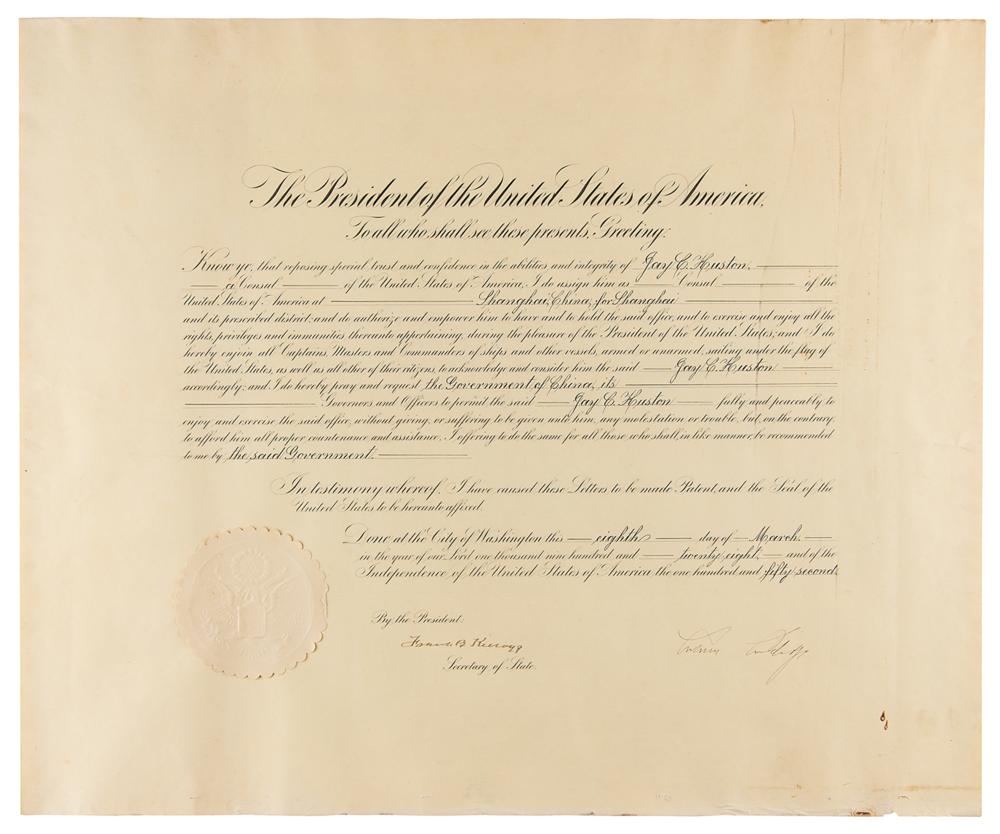 The President of the United States of America,
To all who shall see these presents, Greeting:
Know ye, that reposing special trust and confidence in the abilities and integrity of Jay C. Huston,
a Consul of the United States of America, I do assign him as Consul of the
United States of America at Shanghai, China, for Shanghai
and its prescribed district; and do authorize and empower him to have and to hold the said office, and to exercise and enjoy all the
rights, privileges and immunities thereunto appertaining, during the pleasure of the President of the United States; and I do
hereby enjoin all Captains, Masters and Commanders of ships and other vessels, armed or unarmed, sailing under the flag of
the United States, as well as all other of their citizens, to acknowledge and consider him the said Jay C. Huston
accordingly; and I do hereby pray and request the Government of China, its
Governors and Officers to permit the said Jay C. Huston fully and peaceably to
enjoy and exercise the said office, without giving, or suffering to be given unto him, any molestation or trouble, but, on the contrary,
to afford him all proper countenance and assistance; I offering to do the same for all those who shall, in like manner, be recommended
to me by the said Government.
In testimony whereof, I have caused these Letters to be made Patent, and the Seal of the
United States to be hereunto affixed.
Done at the City of Washington this eighth day of March,
in the year of our Lord one thousand nine hundred and twenty eight, and of the
Independence of the United States of America the one hundred and fifty second.
By the President:
Frank B Kellogg
Calvin Coolidge
Secretary of State.